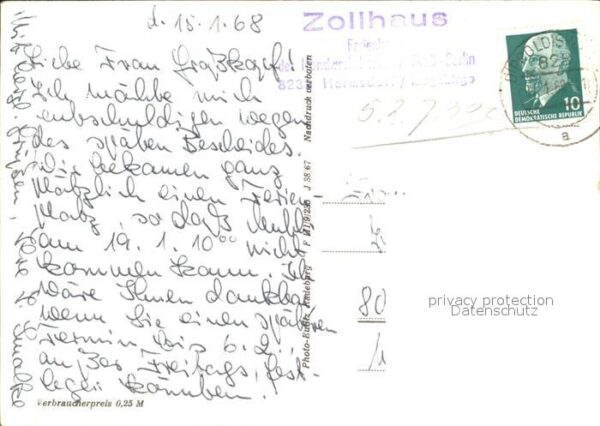 d. 15.1.68
Liebe Frau Graßkopf!
Ich möchte mich
entschuldigen wegen
des späten Bescheides.
Wir bekamen ganz
plötzlich einen Ferien-
platz, so daß
am 19.1. 10⁰⁰ nicht
kommen kann. Ich
wäre Ihnen dankbar
wenn Sie einen späteren
Termin bis 6.2.
außer Freitags, fest-
legen könnten.
Mit Grüßen
Verbraucherpreis 0,25 M
Photo-Kunst Radeburg P M1/9/236 J 38.67 Nachdruck verboten
Zollhaus
Hermsdorf / Erzgebirge
5.2. 7 30
80
10
DEUTSCHE
DEMOKRATISCHE REPUBLIK
a
privacy protection
Datenschutz